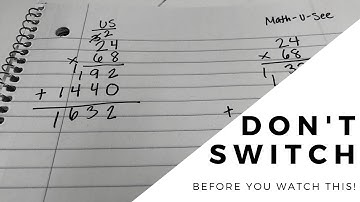 US
24
× 68
192
+ 1440
1632
Math-U-See
24
× 68
+
DON'T
SWITCH
BEFORE YOU WATCH THIS!